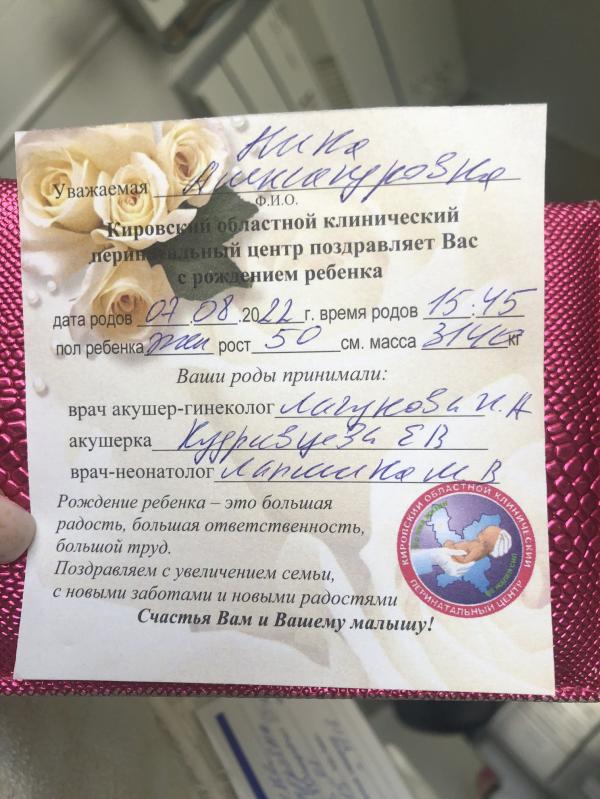 Нина
Уважаемая Александровна
Ф.И.О.
Кировский областной клинический
перинатальный центр поздравляет Вас
с рождением ребенка
дата родов 07.08.2022г. время родов 15:45
пол ребенка жен рост 50 см. масса 3140 кг
Ваши роды принимали:
врач акушер-гинеколог Лагунова И.А
акушерка Кудрявцева Е В
врач-неонатолог М В
Рождение ребенка – это большая
радость, большая ответственность,
большой труд.
Поздравляем с увеличением семьи,
с новыми заботами и новыми радостями
Счастья Вам и Вашему малышу!
КИРОВСКИЙ ОБЛАСТНОЙ КЛИНИЧЕСКИЙ
ПЕРИНАТАЛЬНЫЙ ЦЕНТР